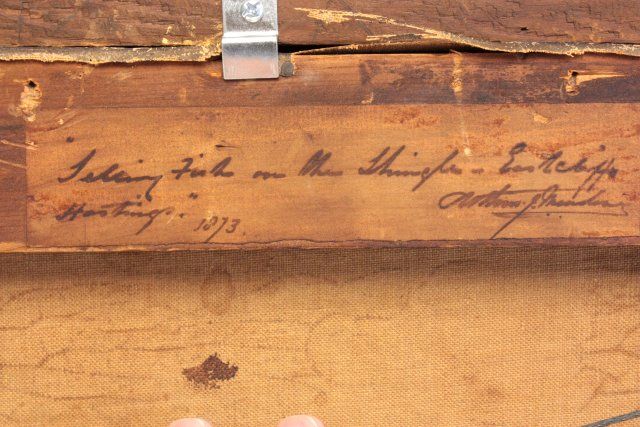 "Selling Fish on the Shingle - Eastcliffe
Hastings." 1873.
Arthur J.